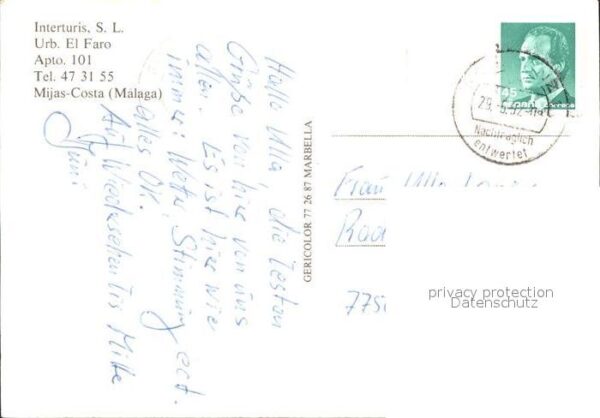 Interturis, S. L.
Urb. El Faro
Apto. 101
Tel. 47 31 55
Mijas-Costa (Malaga)
Hallo Ulla, die letzten
Grüße von hier von uns
allen. Es ist hier wie
immer: Wetter, Stimmung ect.
alles OK.
Auf Wiedersehen bis Mitte
Juni
GERICOLOR 77 26 87 MARBELLA
45
España correos
29.-5.92
Nachträglich
entwertet
Frau Ulla
Rad
775
privacy protection
Datenschutz